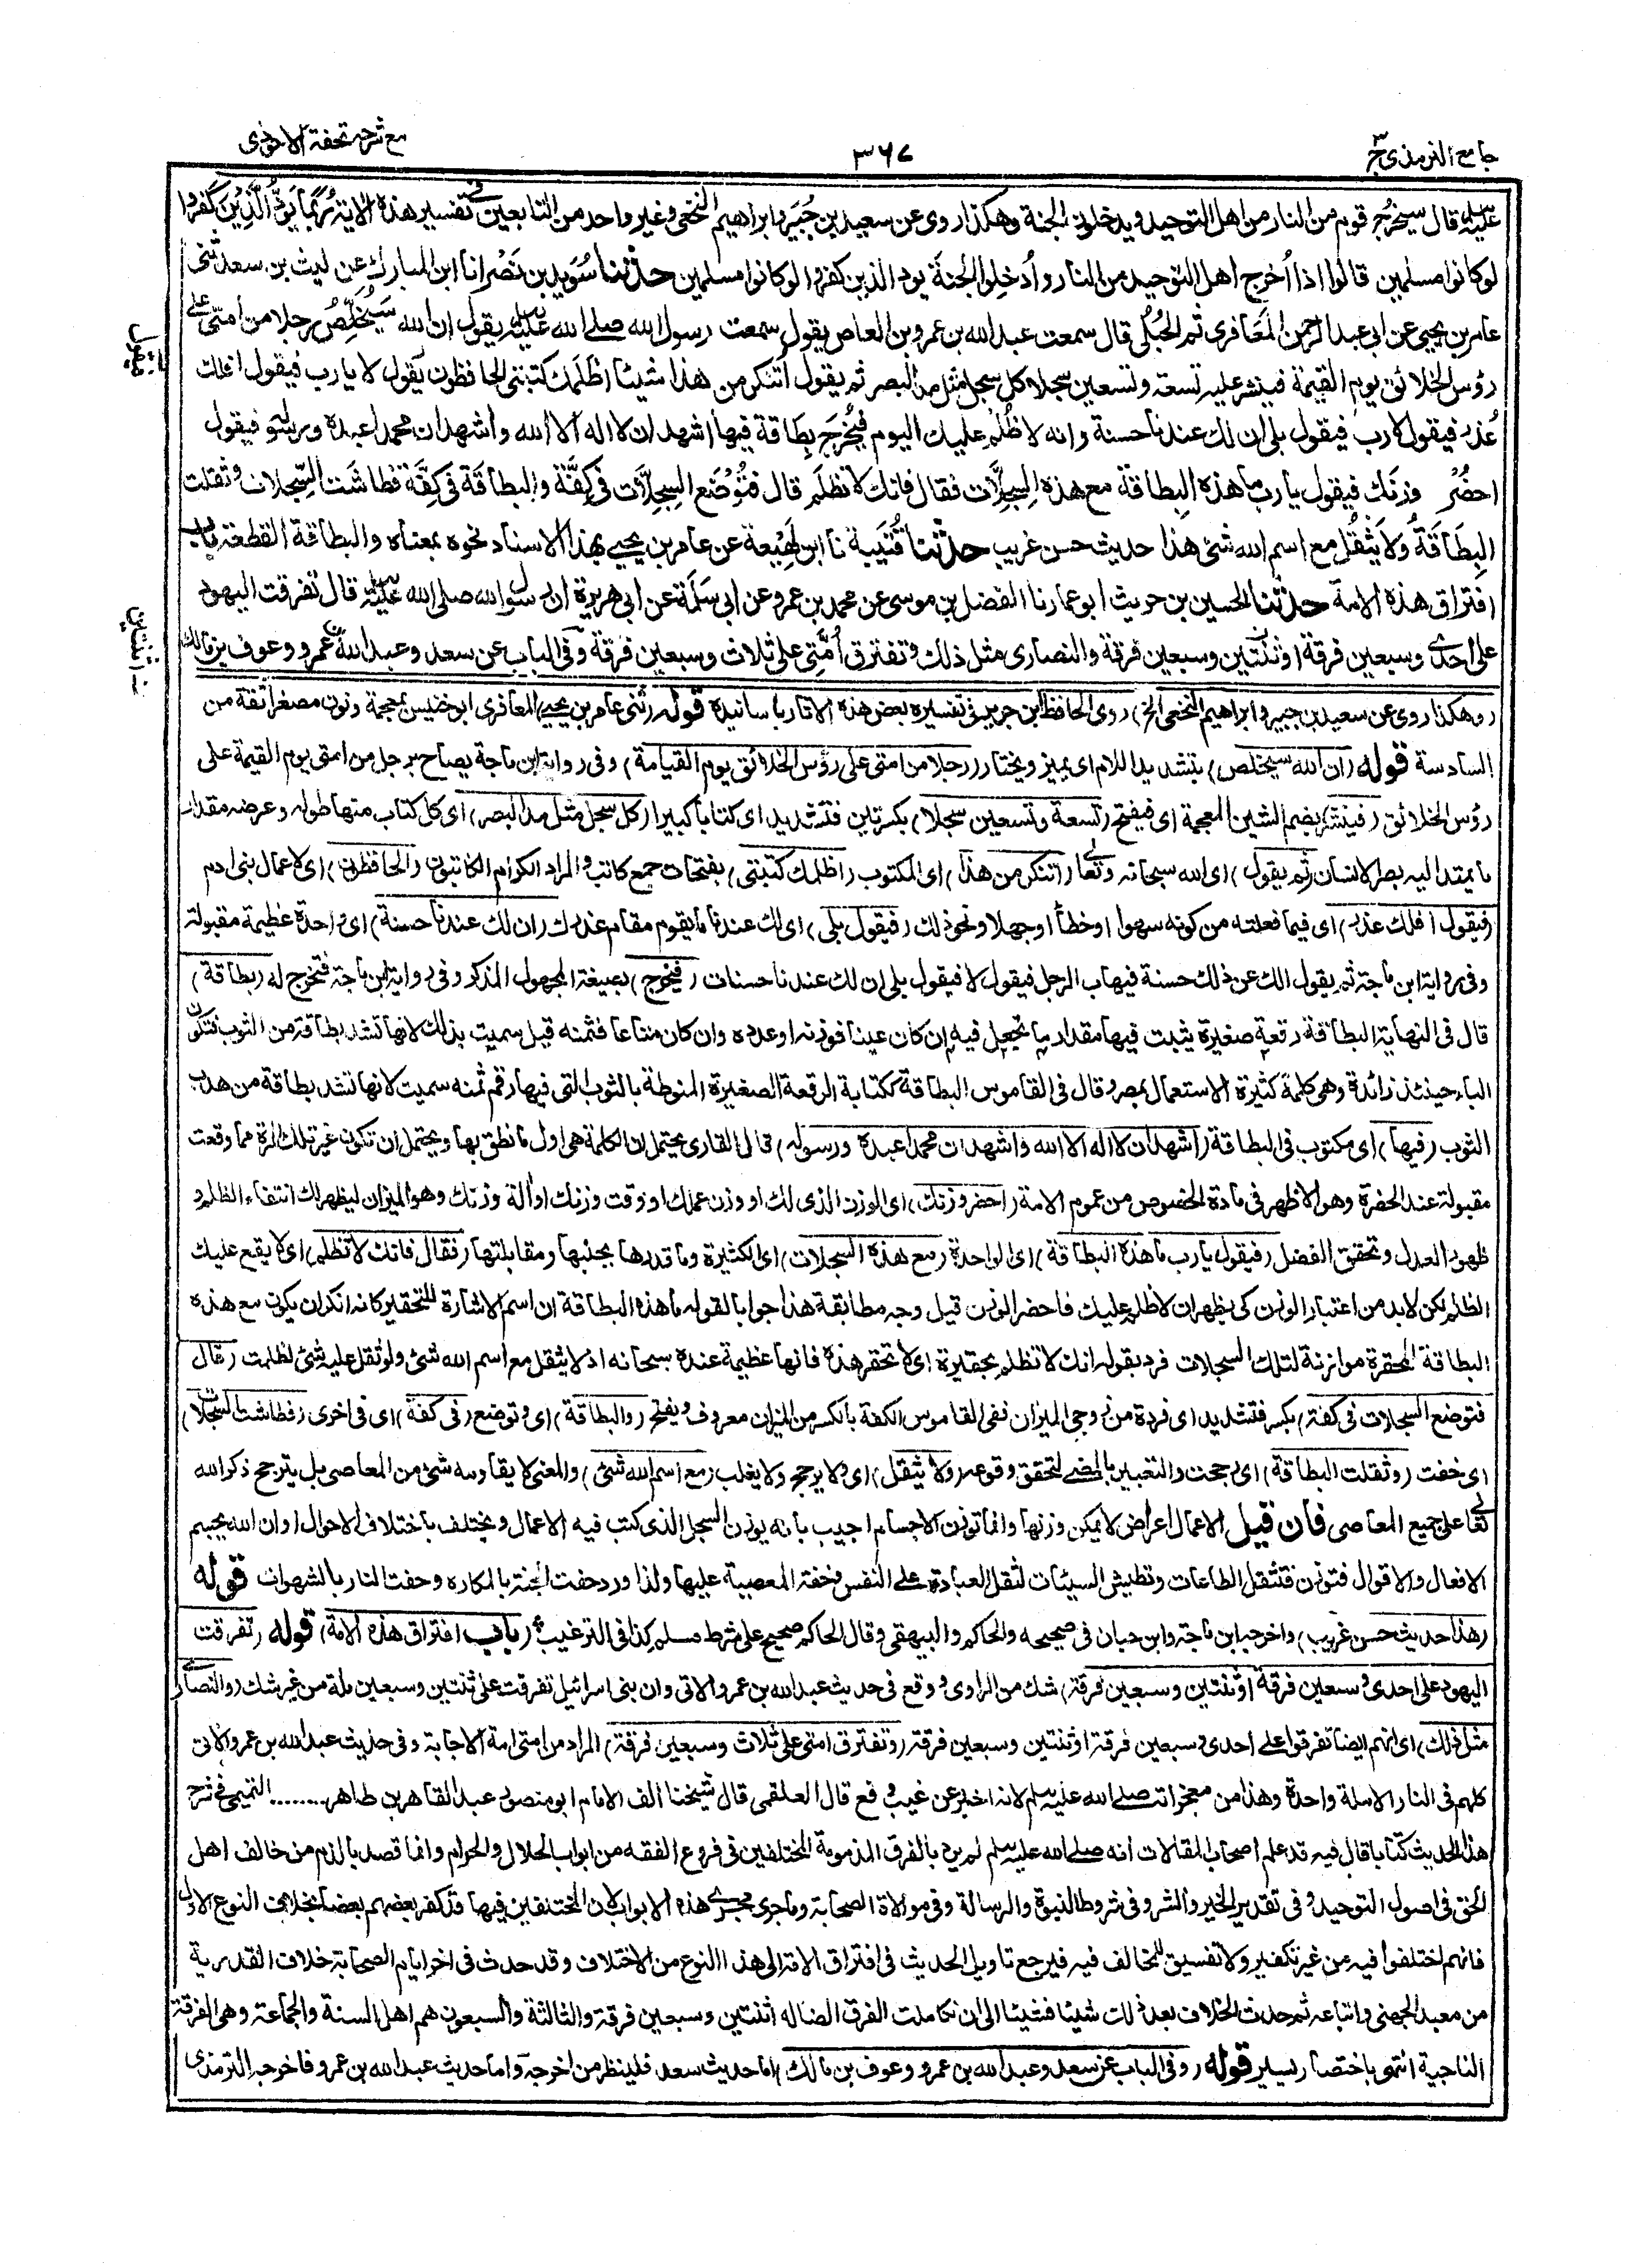 جامع الترمذي ج٣
٣٦٧
مع شرحه تحفة الاحوذي
عليه وسلم قال سيخرج قوم من النار من اهل التوحيد ويدخلون الجنة وهكذا روى عن سعيد بن جُبَير وابراهيم النخعى وغير واحد من التابعين فى تفسير هذه الاية رُبَمَا يَوَدُّ الَّذِيْنَ كَفَرُوا
لو كانوا مسلمين قالوا اذا اُخرج اهل التوحيد من النار واُدخِلوا الجنة يود الذين كفروا لو كانوا مسلمين حدثنا سُوَيد بن نَصْر انا ابن المبارك عن ليث بن سعد ثنى
عامر بن يحيى عن ابى عبد الرحمن المَعَافرى ثم الحُبُلى قال سمعت عبد الله بن عمرو بن العاص يقول سمعت رسول الله صلى الله عليه وسلم يقول ان الله سَيُخَلِّصُ رجلا من امتى على
رؤس الخلائق يوم القيمة فينشر عليه تسعة وتسعين سجلا كل سجل مثل مد البصر ثم يقول أتنكر من هذا شيئا اظَلَمك كتبتى الحافظون يقول لا يا رب فيقول افلك
عُذر فيقول لا يا رب فيقول بلى ان لك عندنا حسنة وانه لا ظُلْمَ عليك اليوم فيُخْرَج بِطَاقة فيها اشهد ان لا اله الا الله واشهد ان محمدا عبده ورسوله فيقول
احضُرْ وزنَك فيقول يا رب ما هذه البِطاقة مع هذه السِجِلَّات فقال فانك لا تظلَم قال فتُوْضَع السِجِلَّات فى كِفَّة والبطاقَة فى كِفَّة فطاشَت السِّجلات وثقلت
البِطَاقَةُ ولا يَثْقُل مع اسم الله شئ هذا حديث حسن غريب حدثنا قُتَيبة نا ابن لَهِيْعة عن عامر بن يحيى بهذا الاسناد نحوه بمعناه والبطاقة القطعة باب
افتراق هذه الامة حدثنا الحسين بن حريث ابو عمار نا الفضل بن موسى عن محمد بن عمرو عن ابى سَلَمَة عن ابى هريرة ان رسول الله صلى الله عليه وسلم قال تفرقت اليهود
على احدى وسبعين فرقة او ثنتين وسبعين فرقة والنصارى مثل ذلك وتفترق اُمَّتى على ثلاث وسبعين فرقة وفى الباب عن سعد وعبد الله بن عمرو وعوف بن مالك
(وهكذا روى عن سعيد بن جبير وابراهيم النخعى الخ) روى الحافظ ابن جرير فى تفسيره بعض هذه الاثار باسانيده قوله (ثنى عامر بن يحيى) المعافرى ابو خنيس بمعجمة ونون مصغرا ثقة من
السادسة قوله (ان الله سيخلص) بتشديد اللام اى يميز ويختار (رجلا من امتى على رؤس الخلائق يوم القيامة) وفى رواية ابن ماجة يصاح برجل من امتى يوم القيمة على
رؤس الخلائق (فينشر) بضم الشين المعجمة اى فيفتح (تسعة وتسعين سجلا) بكسرتين فتشديد اى كتابا كبيرا (كل سجل مثل مد البصر) اى كل كتاب منها طوله وعرضه مقدار
ما يمتد اليه بصر الانسان (ثم يقول) اى الله سبحانه وتعالى (اتنكر من هذا) اى المكتوب (اظلمك كتبتى) بفتحات جمع كاتب والمراد الكرام الكاتبون (الحافظون) اى لاعمال بنى ادم
(فيقول افلك عذر) اى فيما فعلته من كونه سهوا او خطأ او جهلا ونحو ذلك (فيقول بلى) اى لك عندنا ما يقوم مقام عذرك (ان لك عندنا حسنة) اى واحدة عظيمة مقبولة
وفى رواية ابن ماجة ثم يقول الك عن ذلك حسنة فيهاب الرجل فيقول لا فيقول بلى ان لك عندنا حسنات (فيخرج) بصيغة المجهول المذكر وفى رواية ابن ماجة فتخرج له (بطاقة)
قال فى النهاية البطاقة رقعة صغيرة يثبت فيها مقدار ما تجعل فيه ان كان عينا فوزنه او عدده وان كان متاعا فثمنه قيل سميت بذلك لانها تشد بطاقة من الثوب فتكون
الباء حينئذ زائدة وهى كلمة كثيرة الاستعمال بمصر وقال فى القاموس البطاقة ككتابة الرقعة الصغيرة المنوطة بالثوب التى فيها رقم ثمنه سميت لانها تشد بطاقة من هدب
الثوب (فيها) اى مكتوب فى البطاقة (اشهد ان لا اله الا الله واشهد ان محمدا عبده ورسوله) قال القارى يحتمل ان الكلمة هى اول ما نطق بها ويحتمل ان تكون غير تلك المرة مما وقعت
مقبولة عند الحضرة وهو الاظهر فى مادة الخصوص من عموم الامة (احضر وزنك) اى الوزن الذى لك او وزن عملك او وقت وزنك او آلة وزنك وهو الميزان ليظهر لك انتفاء الظلم و
ظهور العدل وتحقق الفضل (فيقول يا رب ما هذه البطاقة) اى الواحدة (مع هذه السجلات) اى الكثيرة وما قدرها بجنبها ومقابلتها (فقال فانك لا تظلم) اى لا يقع عليك
الظلم لكن لا بد من اعتبار الوزن كى يظهر ان لا ظلم عليك فاحضر الوزن قيل وجه مطابقة هذا جوابا لقوله ما هذه البطاقة ان اسم الاشارة للتحقير كانه انكر ان يكون مع هذه
البطاقة المحقرة موازنة لتلك السجلات فرد بقوله انك لا تظلم بحقيرة اى لا تحقر هذه فانها عظيمة عنده سبحانه اذ لا يثقل مع اسم الله شئ ولو ثقل عليه شئ لظلمت (قال
فتوضع السجلات فى كفة) بكسر فتشديد اى فردة من زوجى الميزان ففى القاموس الكفة بالكسر من الميزان معروف ويفتح (والبطاقة) اى وتوضع (فى كفة) اى فى اخرى (فطاشت السجلات)
اى خفت (وثقلت البطاقة) اى رجحت والتعبير بالمضى لتحقق وقوعه (ولا يثقل) اى ولا يرجح ولا يغلب (مع اسم الله شئ) والمعنى لا يقاومه شئ من المعاصى بل يترجح ذكر الله
تعالى على جميع المعاصى فان قيل الاعمال اعراض لا يمكن وزنها وانما توزن الاجسام اجيب بانه يوزن السجل الذى كتب فيه الاعمال ويختلف باختلاف الاحوال او ان الله يجسم
الافعال والاقوال فتوزن فتثقل الطاعات وتطيش السيئات لثقل العبادة على النفس وخفة المعصية عليها ولذا ورد حفت الجنة بالمكاره وحفت النار بالشهوات قوله
(هذا حديث حسن غريب) واخرجه ابن ماجة وابن حبان فى صحيحه والحاكم والبيهقى وقال الحاكم صحيح على شرط مسلم كذا فى الترغيب (باب افتراق هذه الامة) قوله (تفرقت
اليهود على احدى وسبعين فرقة او ثنتين وسبعين فرقة) شك من الراوى ووقع فى حديث عبد الله بن عمرو الاتى وان بنى اسرائيل تفرقت على ثنتين وسبعين ملة من غير شك (والنصارى
مثل ذلك) اى انهم ايضا تفرقوا على احدى وسبعين فرقة او ثنتين وسبعين فرقة (وتفترق امتى على ثلاث وسبعين فرقة) المراد من امتى امة الاجابة وفى حديث عبد الله بن عمرو الاتى
كلهم فى النار الا ملة واحدة وهذا من معجزاته صلى الله عليه وسلم لانه اخبر عن غيب وقع قال العلقمى قال شيخنا الف الامام ابو منصور عبد القاهر بن طاهر........ التميمى فى شرح
هذا الحديث كتابا قال فيه قد علم اصحاب المقالات انه صلى الله عليه وسلم لم يرد بالفرق المذمومة المختلفين فى فروع الفقه من ابواب الحلال والحرام وانما قصد بالذم من خالف اهل
الحق فى اصول التوحيد وفى تقدير الخير والشر وفى شروط النبوة والرسالة وفى موالاة الصحابة وما جرى مجرى هذه الابواب لان المختلفين فيها قد كفر بعضهم بعضا بخلاف النوع الاول
فانهم اختلفوا فيه من غير تكفير ولا تفسيق للمخالف فيه فيرجع تاويل الحديث فى افتراق الامة الى هذا النوع من الاختلاف وقد حدث فى اخر ايام الصحابة خلاف القدرية
من معبد الجهنى واتباعه ثم حدث الخلاف بعد ذلك شيئا فشيئا الى ان تكاملت الفرق الضالة اثنتين وسبعين فرقة والثالثة والسبعون هم اهل السنة والجماعة وهى الفرقة
الناجية انتهى باختصار يسير قوله (وفى الباب عن سعد وعبد الله بن عمرو وعوف بن مالك) اما حديث سعد فلينظر من اخرجه واما حديث عبد الله بن عمرو فاخرجه الترمذى